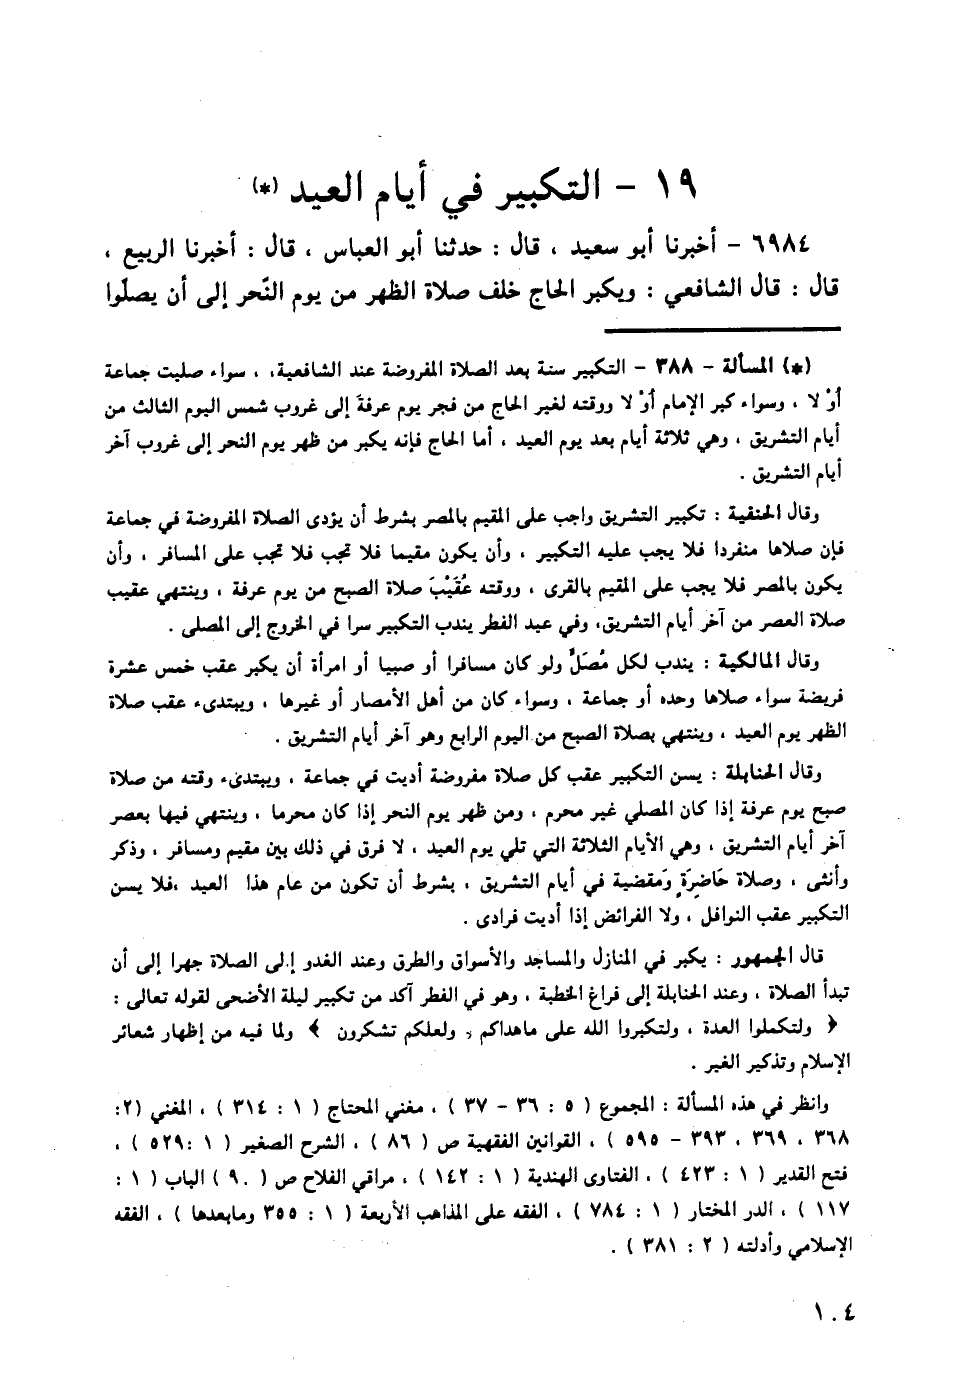 ١٩ - التكبير في أيام العيد (*)
٦٩٨٤ - أخبرنا أبو سعيد ، قال : حدثنا أبو العباس ، قال : أخبرنا الربيع ،
قال : قال الشافعي : ويكبر الحاج خلف صلاة الظهر من يوم النَّحر إلى أن يصلّوا
(*) المسألة - ٣٨٨ - التكبير سنة بعد الصلاة المفروضة عند الشافعية، ، سواء صليت جماعة
أوْ لا ، وسواء كبر الإمام أوْ لا ووقته لغير الحاج من فجر يوم عرفةَ إلى غروب شمس اليوم الثالث من
أيام التشريق ، وهي ثلاثة أيام بعد يوم العيد ، أما الحاج فإنه يكبر من ظهر يوم النحر إلى غروب آخر
أيام التشريق .
وقال الحنفية : تكبير التشريق واجب على المقيم بالمصر بشرط أن يؤدى الصلاة المفروضة في جماعة
فإن صلاها منفردا فلا يجب عليه التكبير ، وأن يكون مقيما فلا تجب فلا تجب على المسافر ، وأن
يكون بالمصر فلا يجب على المقيم بالقرى ، ووقته عُقَيْبَ صلاة الصبح من يوم عرفة ، وينتهي عقيب
صلاة العصر من آخر أيام التشريق، وفي عيد الفطر يندب التكبير سرا في الخروج إلى المصلى .
وقال المالكية : يندب لكل مُصَلٍّ ولو كان مسافرا أو صبيا أو امرأة أن يكبر عقب خمس عشرة
فريضة سواء صلاها وحده أو جماعة ، وسواء كان من أهل الأمصار أو غيرها ، ويبتدىء عقب صلاة
الظهر يوم العيد ، وينتهي بصلاة الصبح من اليوم الرابع وهو آخر أيام التشريق .
وقال الحنابلة : يسن التكبير عقب كل صلاة مفروضة أديت في جماعة ، ويبتدىء وقته من صلاة
صبح يوم عرفة إذا كان المصلي غير محرم ، ومن ظهر يوم النحر إذا كان محرما ، وينتهي فيها بعصر
آخر أيام التشريق ، وهي الأيام الثلاثة التي تلي يوم العيد ، لا فرق في ذلك بين مقيم ومسافر ، وذكر
وأنثى ، وصلاة حَاضِرَةٍ وَمَقضية في أيام التشريق ، بشرط أن تكون من عام هذا العيد ،فلا يسن
التكبير عقب النوافل ، ولا الفرائض إذا أديت فرادى .
قال الجمهور : يكبر في المنازل والمساجد والأسواق والطرق وعند الغدو إلى الصلاة جهرا إلى أن
تبدأ الصلاة ، وعند الحنابلة إلى فراغ الخطبة ، وهو في الفطر آكد من تكبير ليلة الأضحى لقوله تعالى :
﴿ ولتكملوا العدة ، ولتكبروا الله على ماهداكم ، ولعلكم تشكرون ﴾ ولما فيه من إظهار شعائر
الإسلام وتذكير الغير .
وانظر في هذه المسألة : المجموع ( ٥ : ٣٦ - ٣٧ ) ، مغني المحتاج ( ١ : ٣١٤ ) ، المغني (٢:
٣٦٨ ، ٣٦٩ ، ٣٩٣ - ٥٩٥ ) ، القوانين الفقهية ص ( ٨٦ ) ، الشرح الصغير ( ١ :٥٢٩ ) ،
فتح القدير ( ١ : ٤٢٣ ) ، الفتاوى الهندية ( ١ : ١٤٢ ) ، مراقي الفلاح ص ( ٩٠ ) الباب ( ١ :
١١٧ ) ، الدر المختار ( ١ : ٧٨٤ ) ، الفقه على المذاهب الأربعة ( ١ : ٣٥٥ ومابعدها ) ، الفقه
الإسلامي وأدلته ( ٢ : ٣٨١ ) .
١٠٤